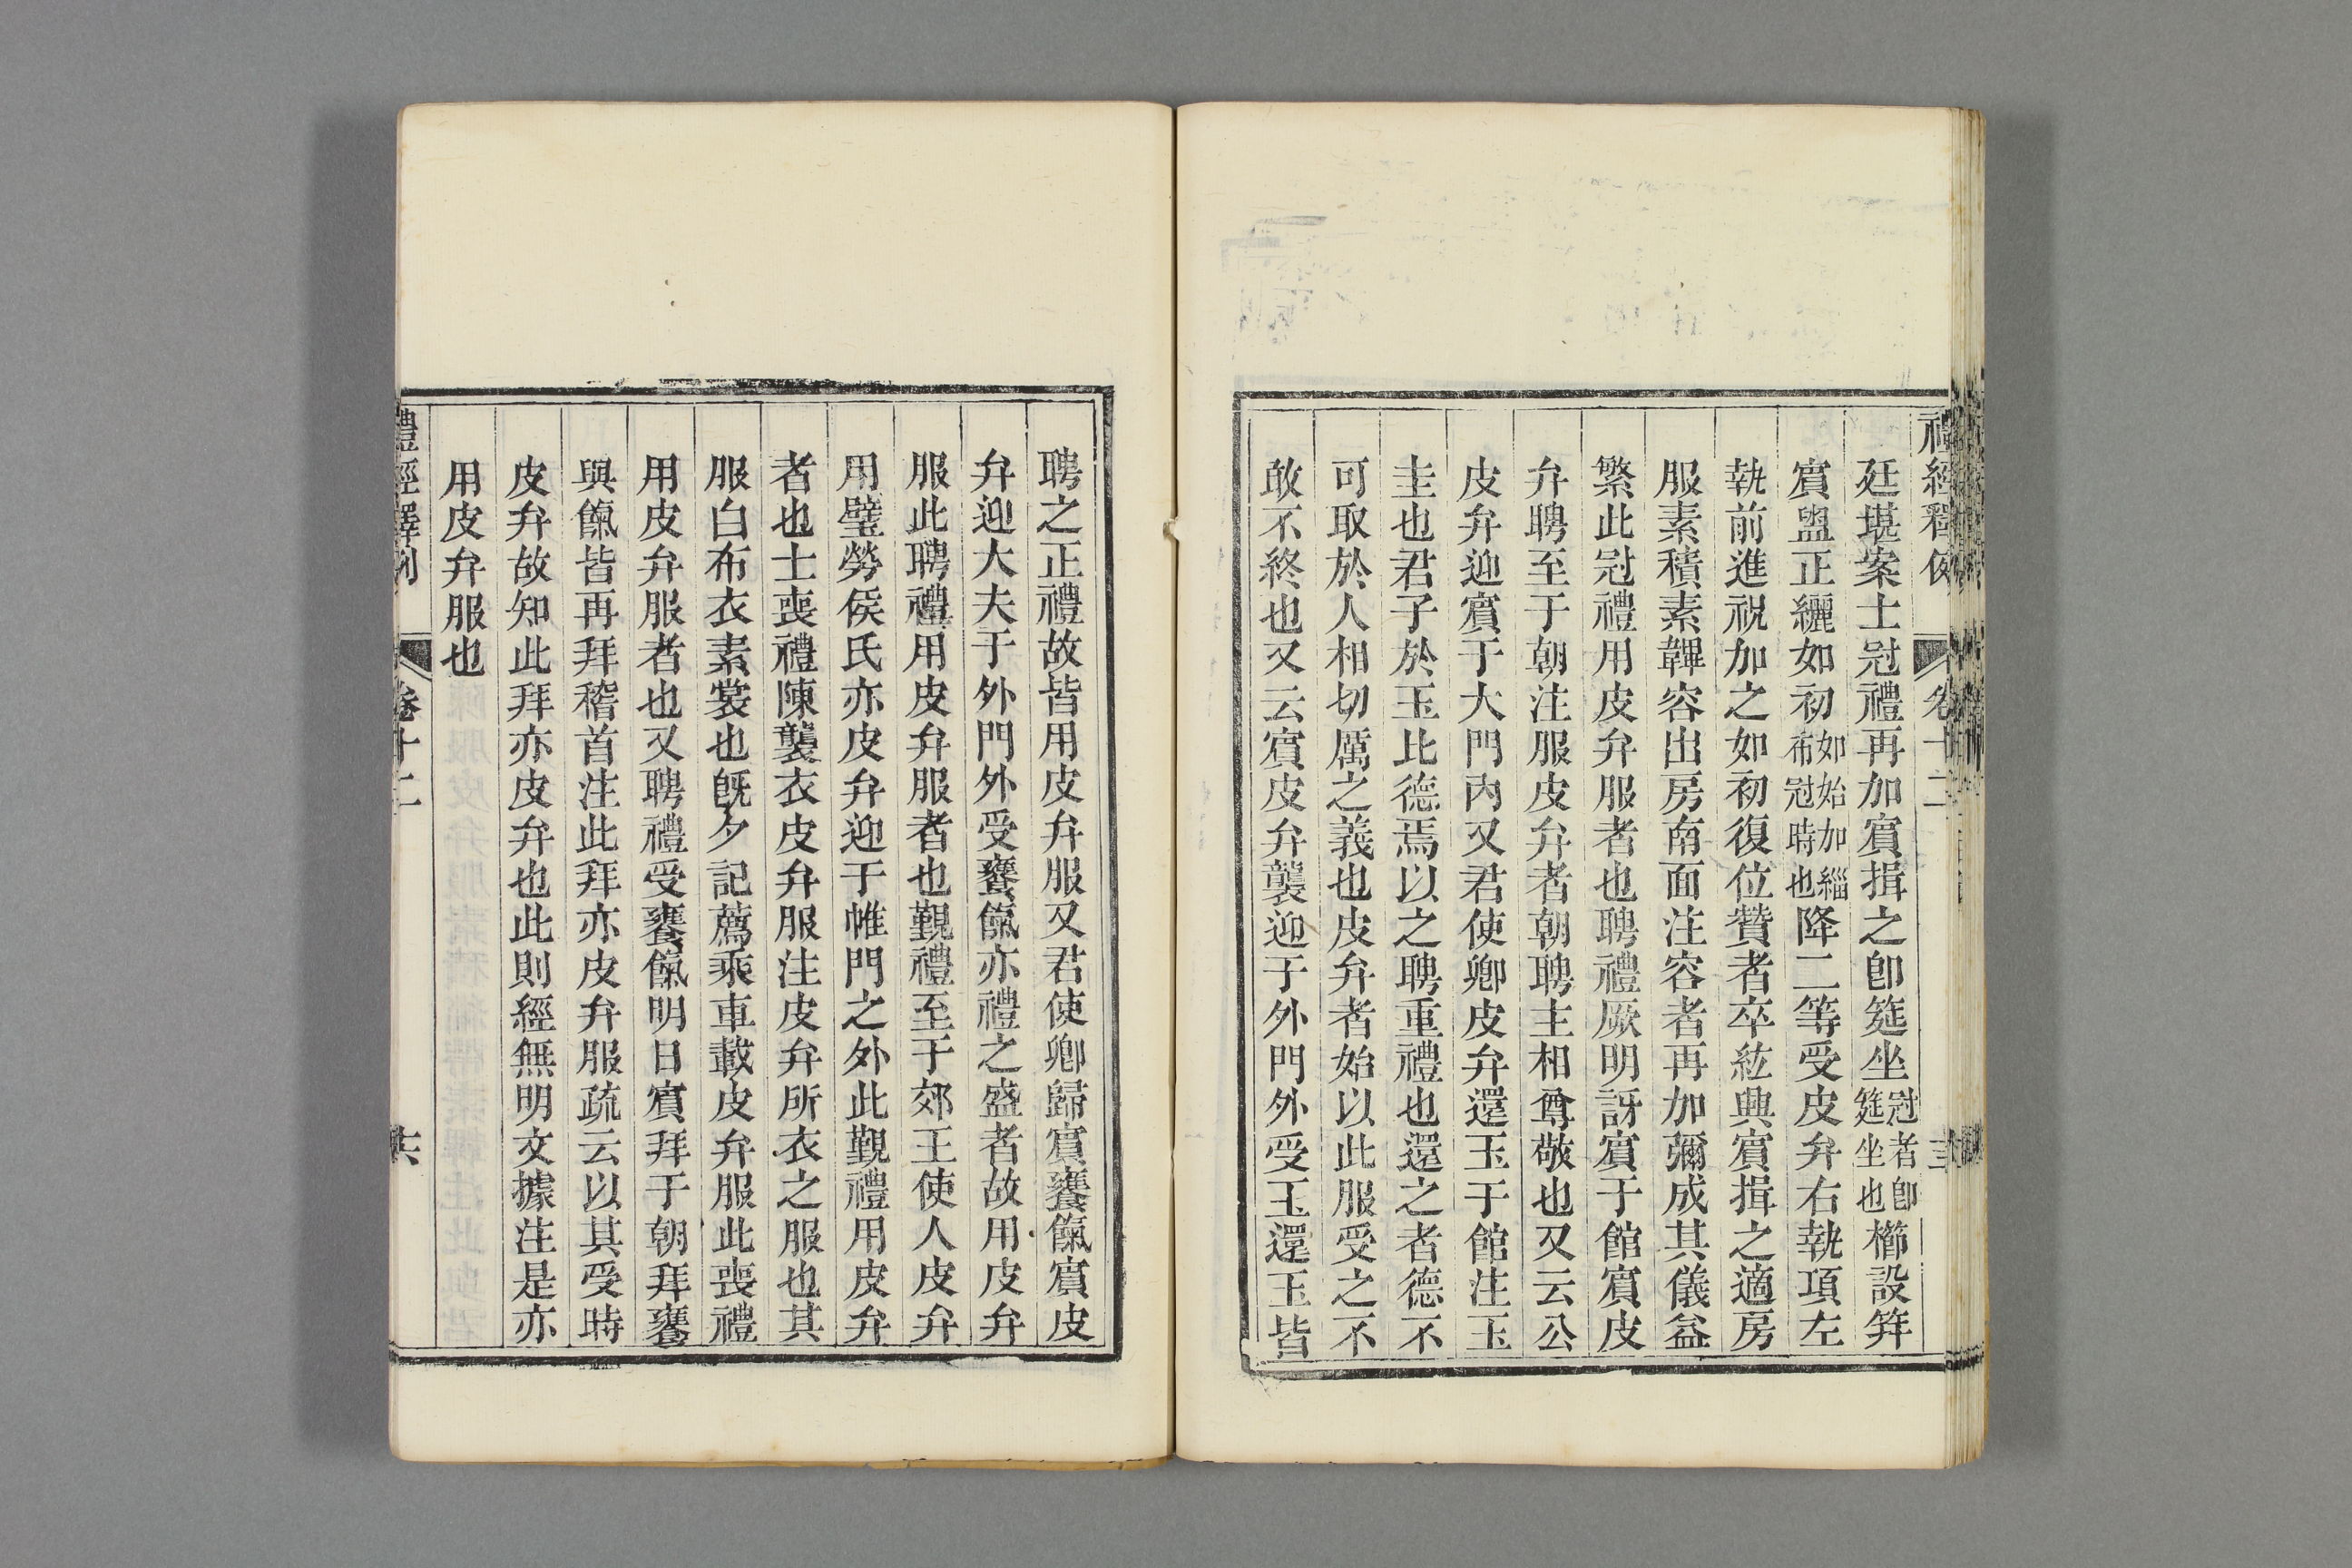 禮經釋例
卷十二
廷堪案士冠禮再加賓揖之卽筵坐冠者卽筵坐也櫛設笄
賓盥正纚如初如始加緇布冠時也降二等受皮弁右執項左
執前進祝加之如初復位贊者卒紘興賓揖之適房
服素積素韠容出房南面注容者再加彌成其儀益
繁此冠禮用皮弁服者也聘禮厥明訝賓于館賓皮
弁聘至于朝注服皮弁者朝聘主相尊敬也又云公
皮弁迎賓于大門內又君使卿皮弁還玉于館注玉
圭也君子於玉比德焉以之聘重禮也還之者德不
可取於人相切厲之義也皮弁者始以此服受之不
敢不終也又云賓皮弁襲迎于外門外受玉還玉皆
聘之正禮故皆用皮弁服又君使卿歸賓饔餼賓皮
弁迎大夫于外門外受饔餼亦禮之盛者故用皮弁
服此聘禮用皮弁服者也覲禮至于郊王使人皮弁
用璧勞侯氏亦皮弁迎于帷門之外此覲禮用皮弁
者也士喪禮陳襲衣皮弁服注皮弁所衣之服也其
服白布衣素裳也旣夕記薦乘車載皮弁服此喪禮
用皮弁服者也又聘禮受饔餼明日賓拜于朝拜饔
與餼皆再拜稽首注此拜亦皮弁服疏云以其受時
皮弁故知此拜亦皮弁也此則經無明文據注是亦
用皮弁服也
禮經釋例
卷十二
共